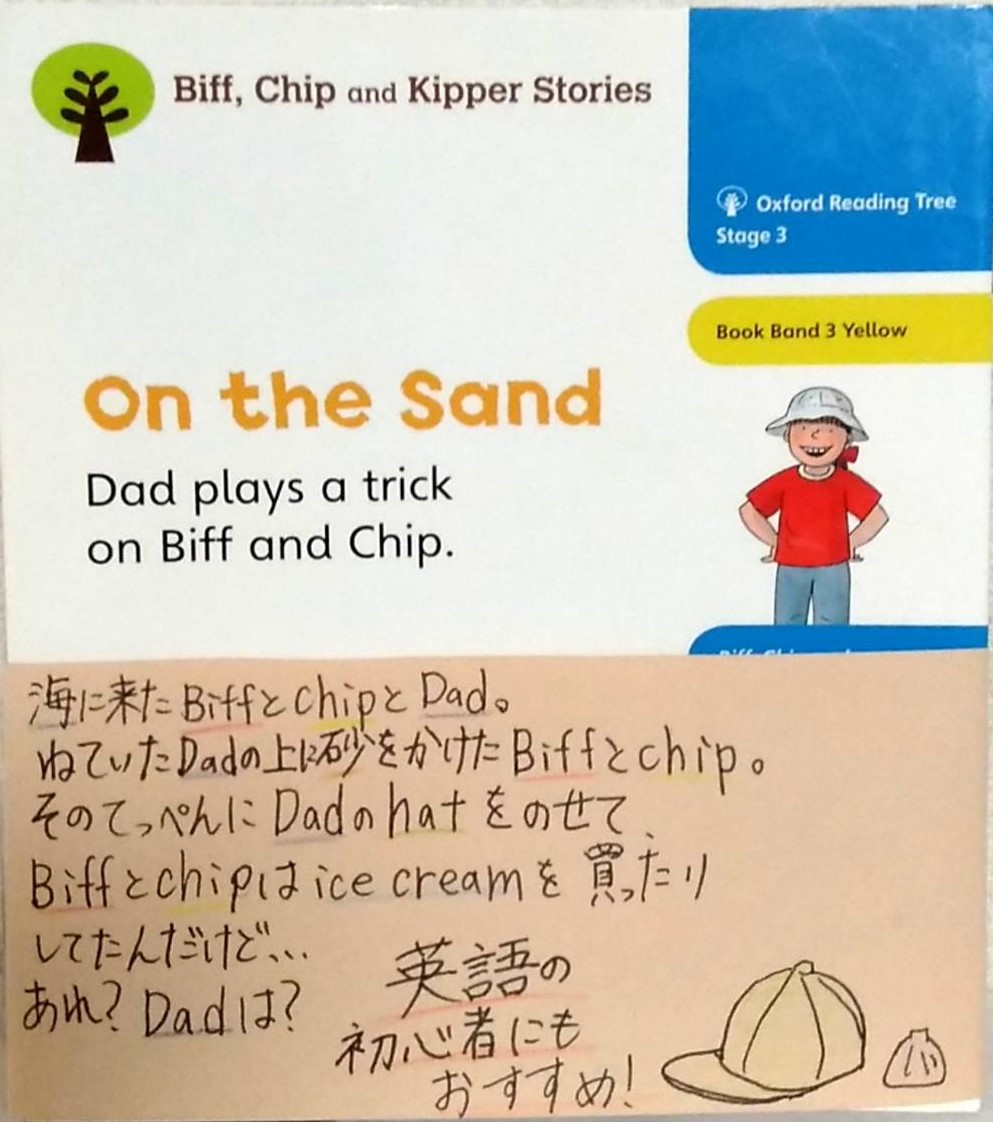 Biff, Chip and Kipper Stories
Oxford Reading Tree
Stage 3
Book Band 3 Yellow
On the Sand
Dad plays a trick
on Biff and Chip.
海に来たBiffとchipとDad。
ねていたDadの上に砂をかけたBiffとchip。
そのてっぺんにDadのhatをのせて、
Biffとchipはice creamを買ったり
してたんだけど…
あれ?Dadは?
英語の
初心者にも
おすすめ!